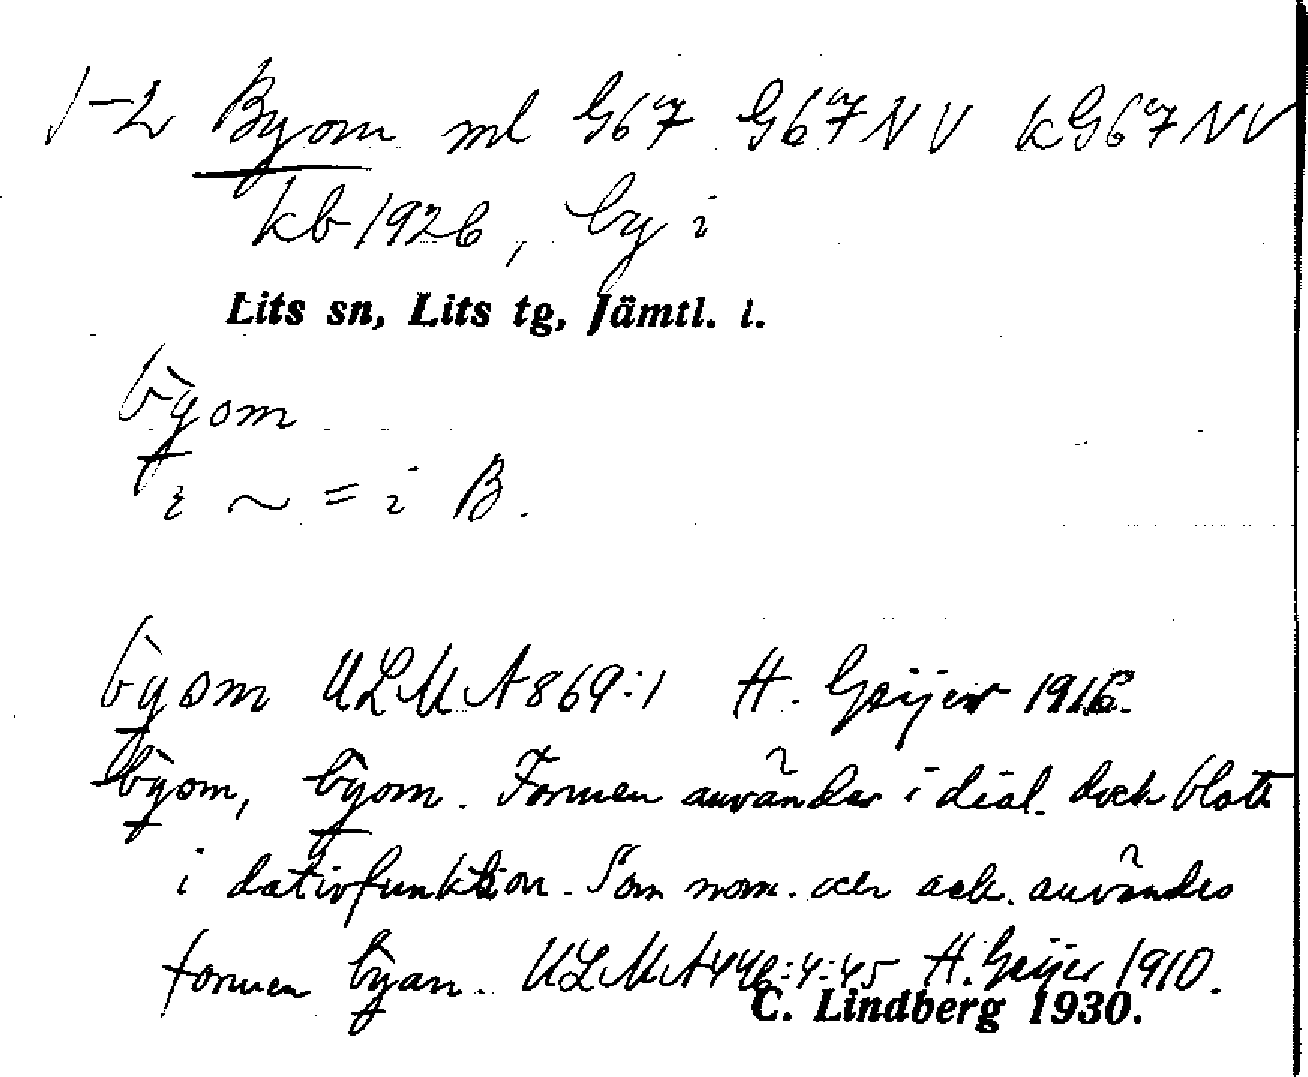 1-2 Byom ml G67 G67NV kG67NV
kb 1926, by i
Lits sn, Lits tg, Jämtl. l.
bỳ̠om
i ~ = i B.
bỳ̠om ULMA 869:1 H. Geijer 1916.
bỳ̠om, bỳ̠om. Formen användes i dial. dock blott
i dativfunktion. Som nom. och ack. användes
formen bỳ̠an. ULMA 446:4:45 H. Geijer 1910.
C. Lindberg 1930.